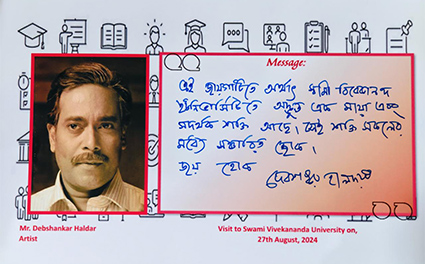 Message:
এই জায়গাটিতে অর্থাৎ স্বামী বিবেকানন্দ
ইউনিভার্সিটিতে অদ্ভুত এক মায়া এবং
সদর্থক শক্তি আছে। সেই শক্তি সকলের
মধ্যে সঞ্চারিত হোক।
জয় হোক
দেবশঙ্কর হালদার
Mr. Debshankar Haldar
Artist
Visit to Swami Vivekananda University on,
27th August, 2024